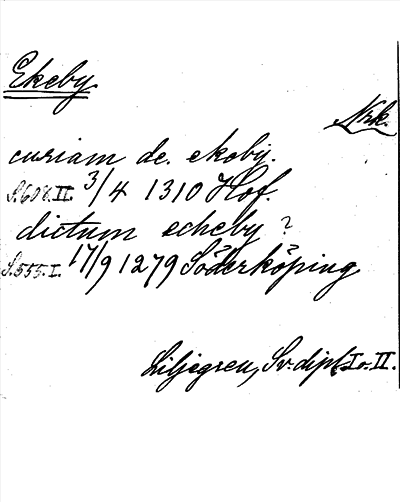 Ekeby
Nrk.
curiam de. ekoby.
S.608.II. 3/4 1310 Hof.
dictum echeby ?
S.555.I. 17/9 1279 Söderköping
Liljegren, Sv. dipl. I o. II.